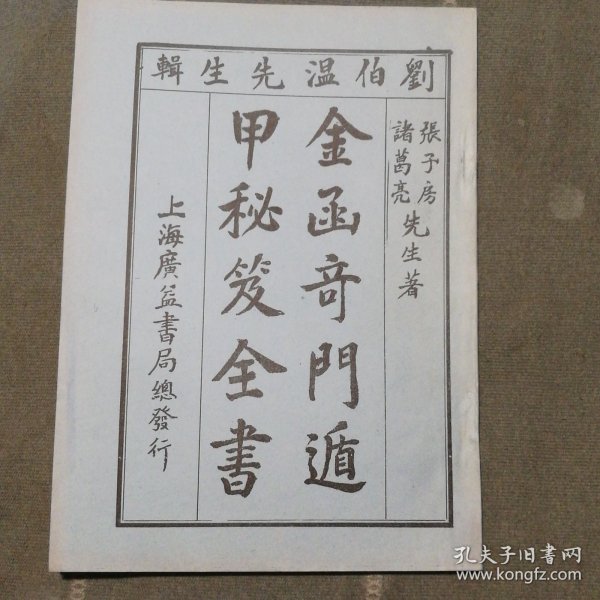 劉伯溫先生輯
張子房
諸葛亮
先生著
金函奇門遁
甲秘笈全書
上海廣益書局總發行
孔夫子旧书网
www.kongfz.com